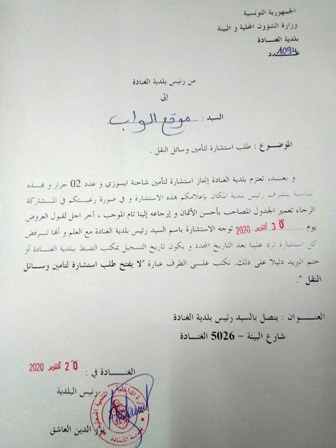 الجمهورية التونسية
وزارة الشؤون المحلية و البيئة
بلدية الغنادة
1094
من رئيس بلدية الغنادة
إلى
السيد : موقع الواب
الموضوع : طلب استشارة لتأمين وسائل النقل .
و بعد، تعتزم بلدية الغنادة إنجاز استشارة لتأمين شاحنة ايسوزي و عدد 02 جرار و بهذه
المناسبة يتشرف رئيس بلدية المكان بإعلامكم بهذه الاستشارة و في صورة رغبتكم في المشاركة
الرجاء تعمير الجدول المصاحب بأحسن الأثمان و إرجاعه إلينا تام الموجب ، آخر اجل لقبول العروض
يوم 30 أكتوبر 2020 توجه الاستشارة باسم السيد رئيس بلدية الغنادة مع العلم و أنها ترفض
كل استشارة ترد علينا بعد التاريخ المحدد و يكون تاريخ التسجيل بمكتب الضبط ببلدية الغنادة أو
ختم البريد دليلا على ذلك. تكتب على الظرف عبارة "لا يفتح طلب استشارة لتأمين وسائل
النقل ".
العنوان : يتصل بالسيد رئيس بلدية الغنادة
شارع البيئة – 5026 الغنادة
الغنادة في : 20 أكتوبر 2020
رئيس البلدية
نور الدين العاشق